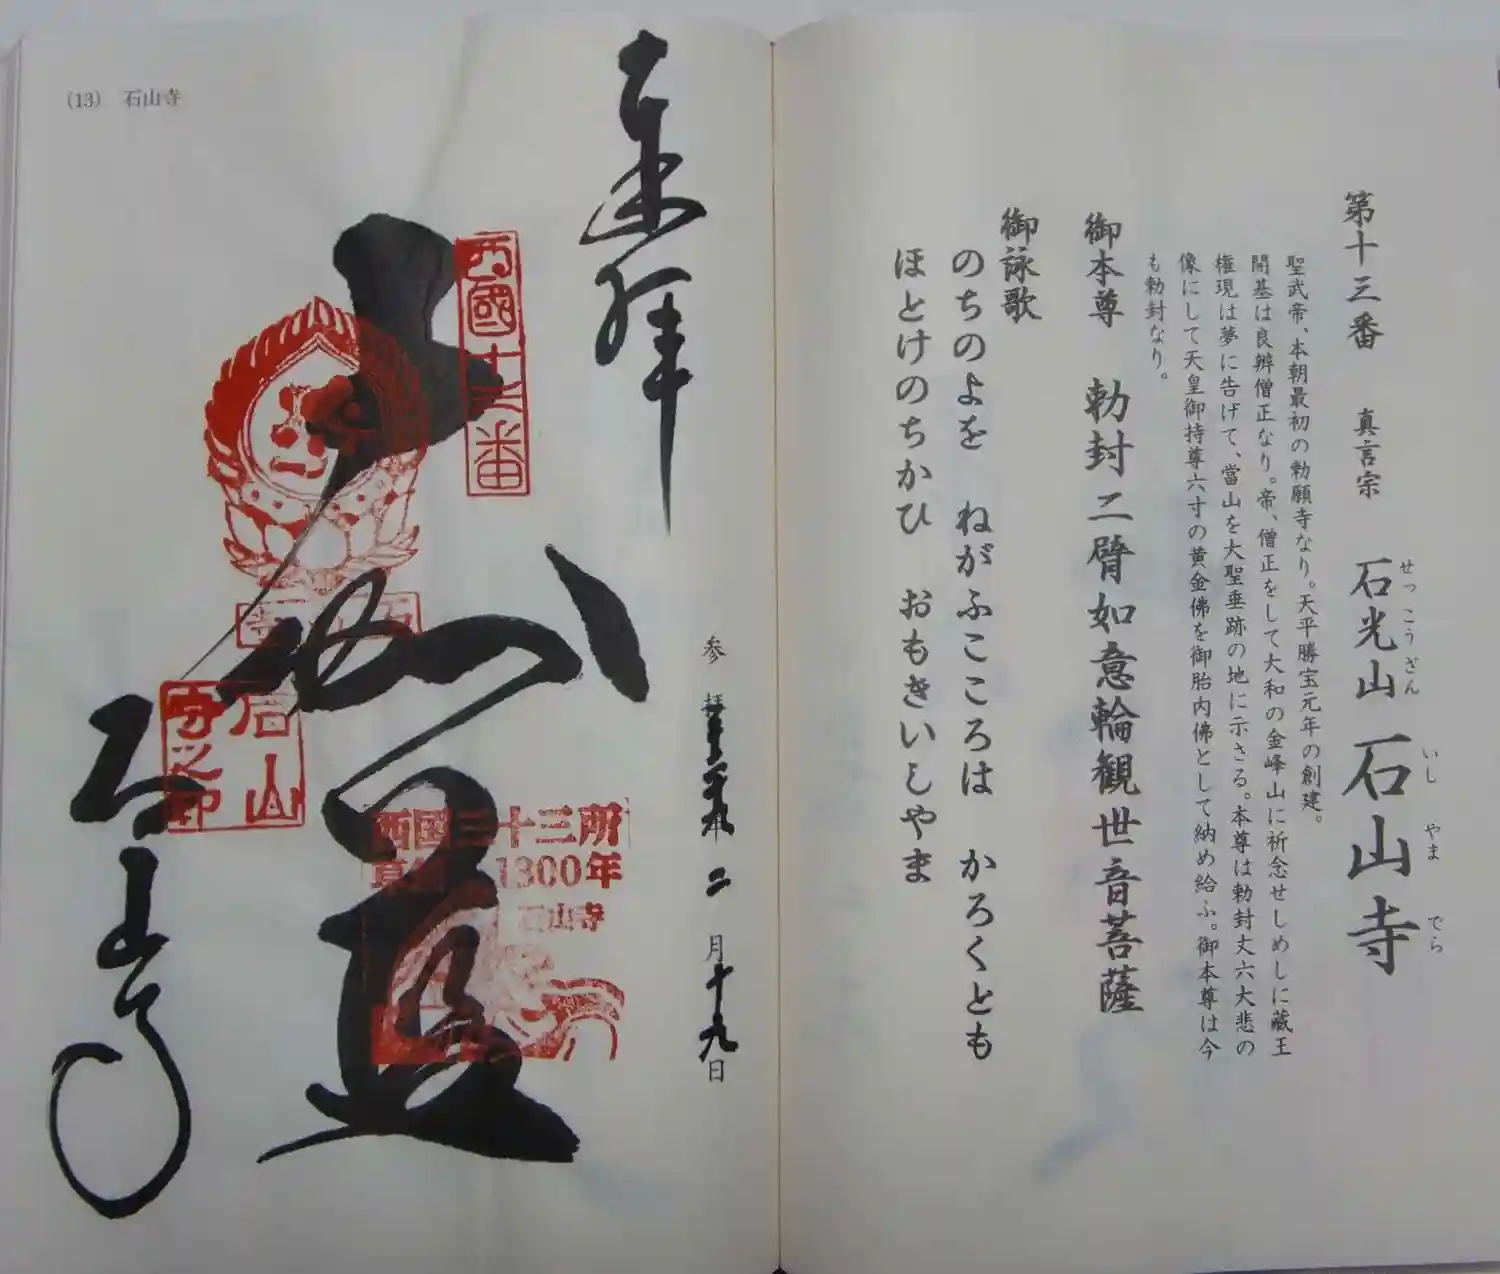 第十三番 真言宗 石光山 石山寺
せっこうざん いしやまでら
聖武帝、本朝最初の勅願寺なり。天平勝宝元年の創建。
開基は良辨僧正なり。帝、僧正をして大和の金峰山に祈念せしめしに蔵王
権現は夢に告げて、當山を大聖垂跡の地に示さる。本尊は勅封丈六大悲の
像にして天皇御持尊六寸の黄金佛を御胎内佛として納め給ふ。御本尊は今
も勅封なり。
御本尊 勅封二臂如意輪観世音菩薩
御詠歌
のちのよを ねがふこころは かろくとも
ほとけのちかひ おもきいしやま
(13) 石山寺
奉拝
参拝 二月十九日
西國十三番
石山寺
石山寺之印
西国三十三所
1300年
石山寺